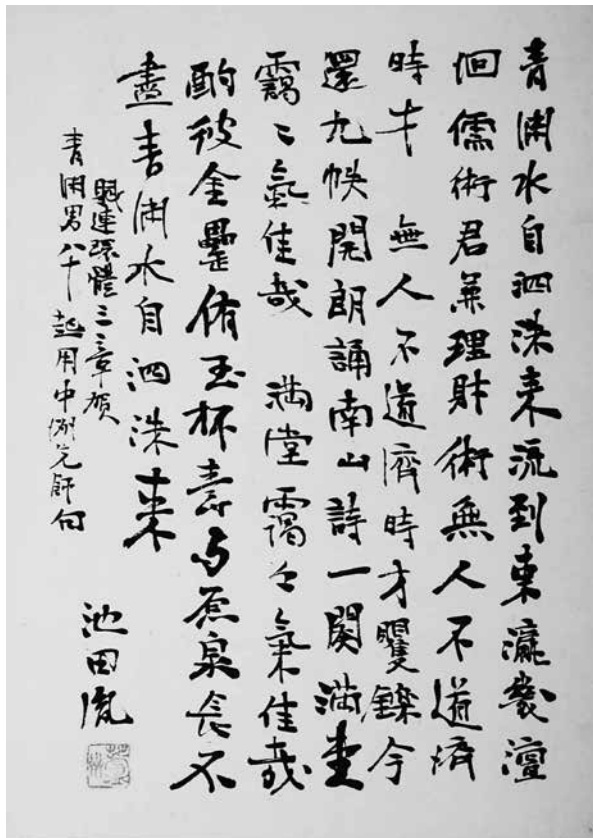 青淵水自泗洙来流到東瀛幾澶
洄儒術君兼理財術無人不道済
時才 無人不道済時才矍鑠今
還九帙開朗誦南山詩一闋満堂
靄〻氣佳哉 満堂靄々氣佳哉
酌彼金罍侑玉杯壽与原泉長不
盡青淵水自泗洙来
賦連環體三章賀
青淵男八十 起用中洲先師句
池田胤